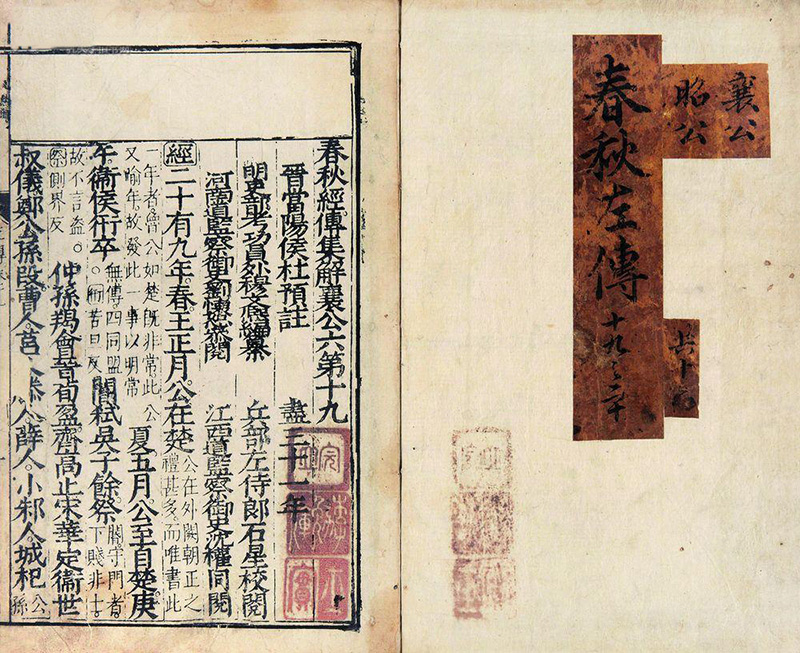 襄公
昭公
春秋左傳十九之二十
共十
春秋經傳集解襄公六第十九
晉當陽侯杜預註 盡三十一年
明吏部考功員外穆文熙編纂 兵部左侍郎石星校閱
河南道監察御史劉懷恕參閱 江西道監察御史沈權同閱
經二十有九年。春。王正月。公在楚公在外闕朝正之禮甚多。而唯書此
一年者魯公如楚既非常此公又踰年。故發此一事以明常夏五月。公至自楚。庚
午。衞侯衎卒。無傳。四同盟。衎苦旦反閽弒吳子餘祭。閽守門者。下賤非士。
故不言盜。祭側界反仲孫羯會晉荀盈。齊高止宋華定衞世
叔儀。鄭公孫段曹人。莒人。滕人。薛人。小邾人。城杞公孫